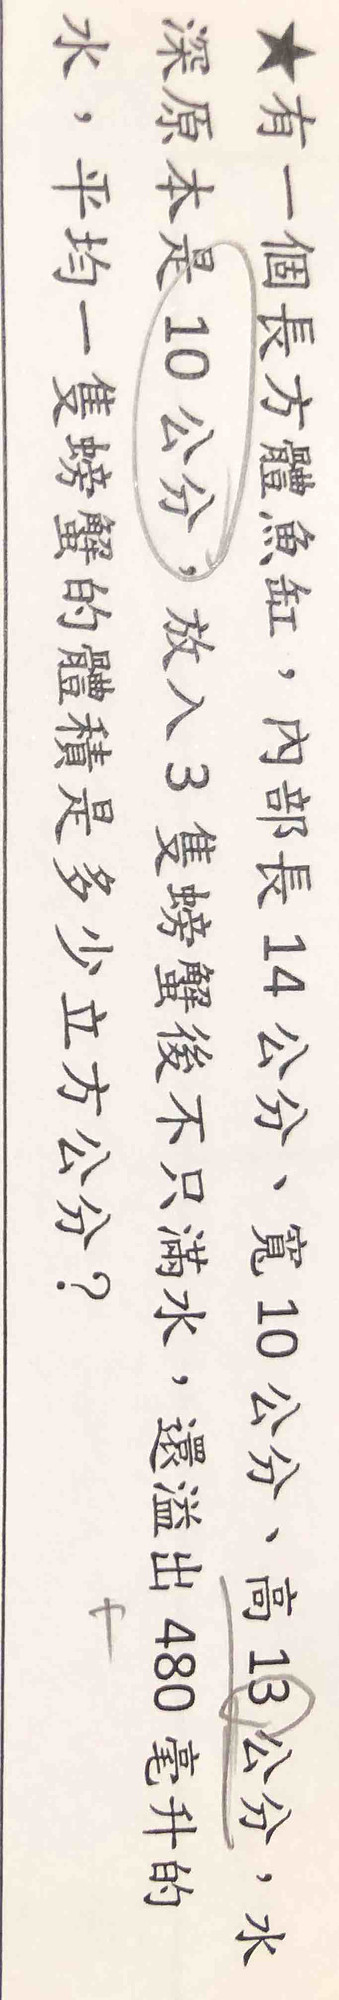 ★有一個長方體魚缸，內部長 14 公分、寬 10 公分、高 13 公分，水
深原本是 10 公分，放入 3 隻螃蟹後不只滿水，還溢出 480 毫升的
水，平均一隻螃蟹的體積是多少立方公分？